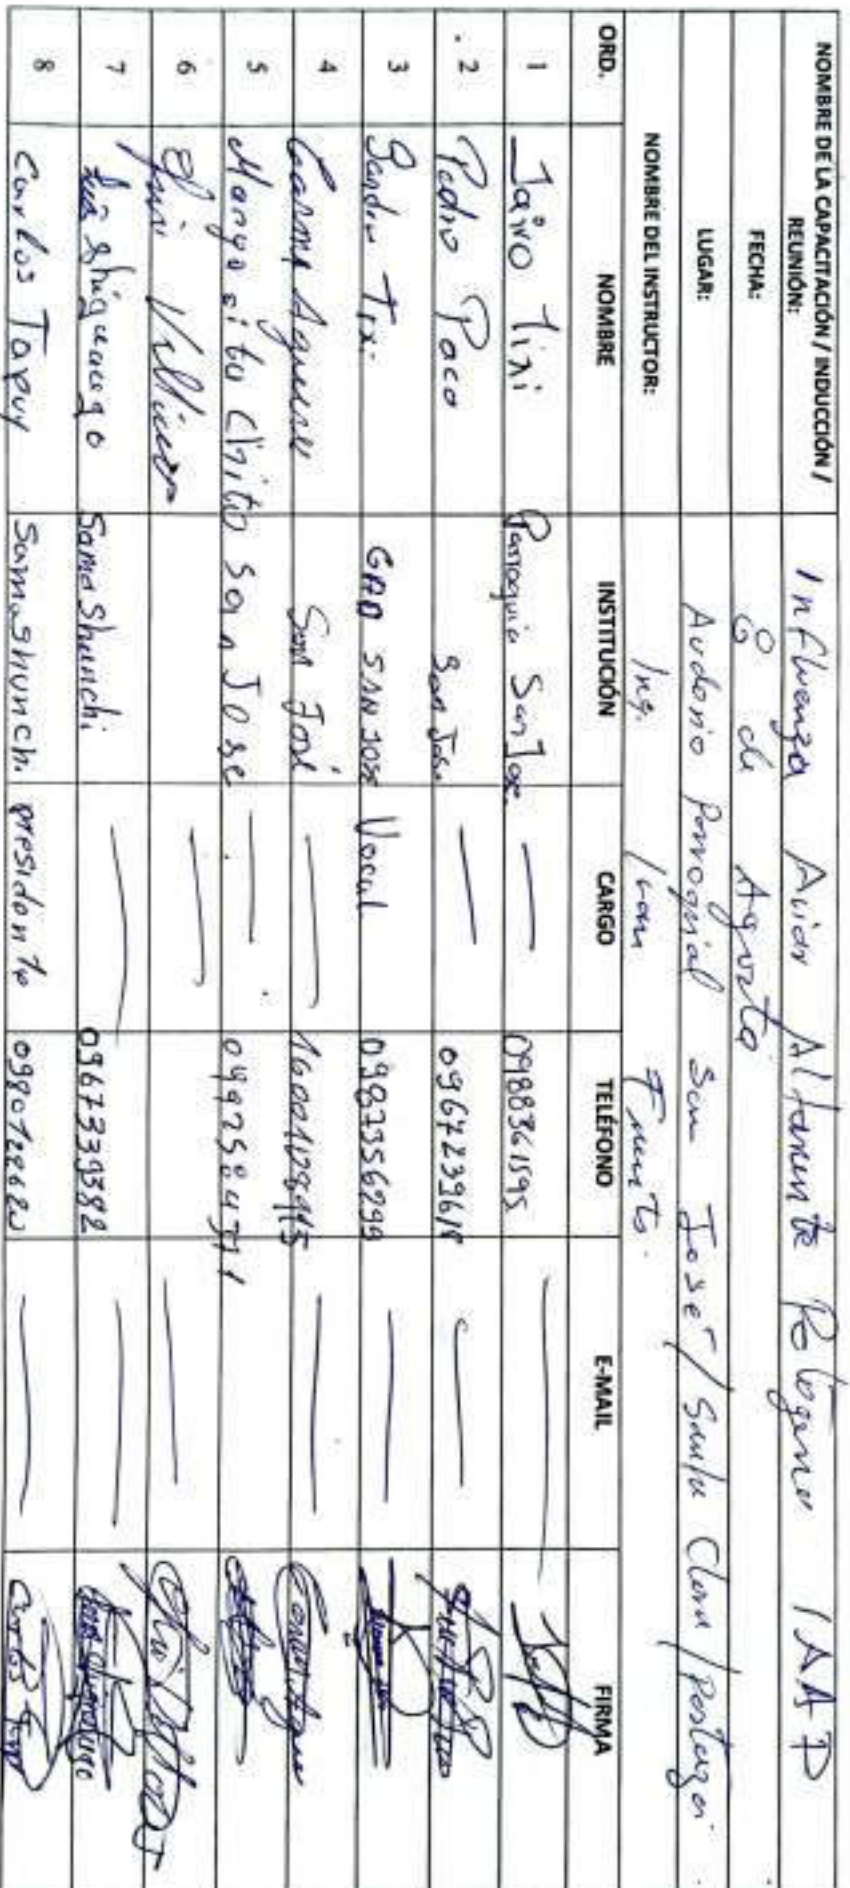 NOMBRE DE LA CAPACITACIÓN / INDUCCIÓN / REUNIÓN: Influenza Aviar Altamente Patógena IAAP
FECHA: 8 de Agosto
LUGAR: Auditorio Parroquial San José / Santa Clara / Pastaza.
NOMBRE DEL INSTRUCTOR: Ing. Ivan
ORD. NOMBRE INSTITUCIÓN CARGO TELÉFONO E-MAIL FIRMA
1 Jairo Tixi Parroquia San Jose. — 0988361595 —
2 Pedro Paco San Jose — 0967239618 —
3 Sandra Tixi GAD SAN JOSE Vocal 0983356299 —
4 San José — —
5 San Jose —
6 — —
7 Shiguango SamaShunchi — 0967339382 —
8 Carlos Tapuy Samashunchi presidente —